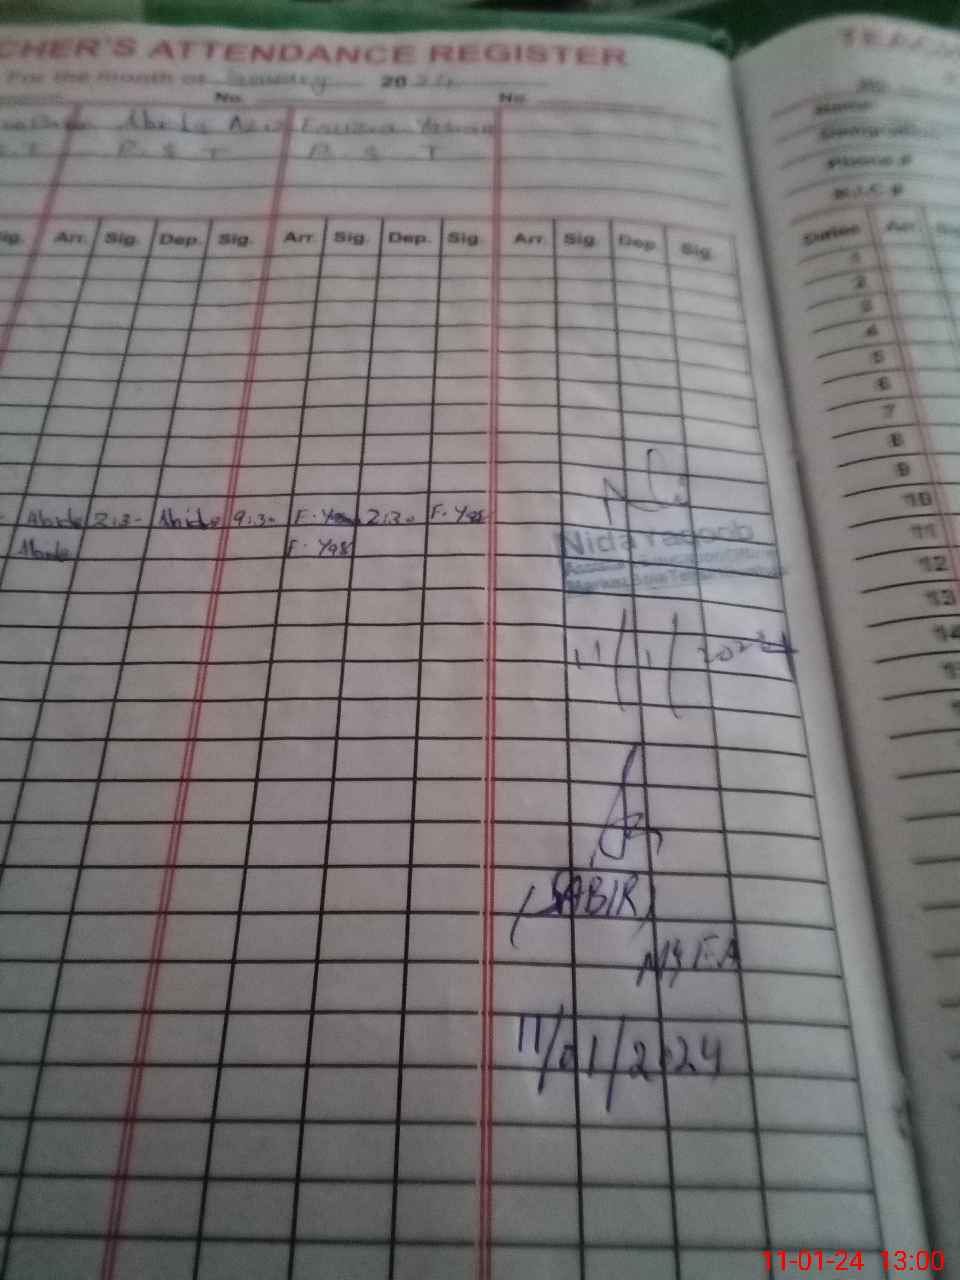 CHER'S ATTENDANCE REGISTER
For the month of January 2024
No. No.
Abida Aziz Fouzia Yasmin
S. T P. S T P. S T
Sig. Arr. Sig. Dep. Sig. Arr. Sig. Dep. Sig. Arr. Sig. Dep. Sig.
Abida 2:30 Abida 9:30 F. Yas 2:30 F. Yas
Abida F. Yas
Nida Yaqoob
11/1/2024
(SABIR)
MEA
11/01/2024
TEACH
Name
Designation
Phone #
N.I.C #
Dates Arr.
1
2
3
4
5
6
7
8
9
10
11
12
13
14
11-01-24 13:00